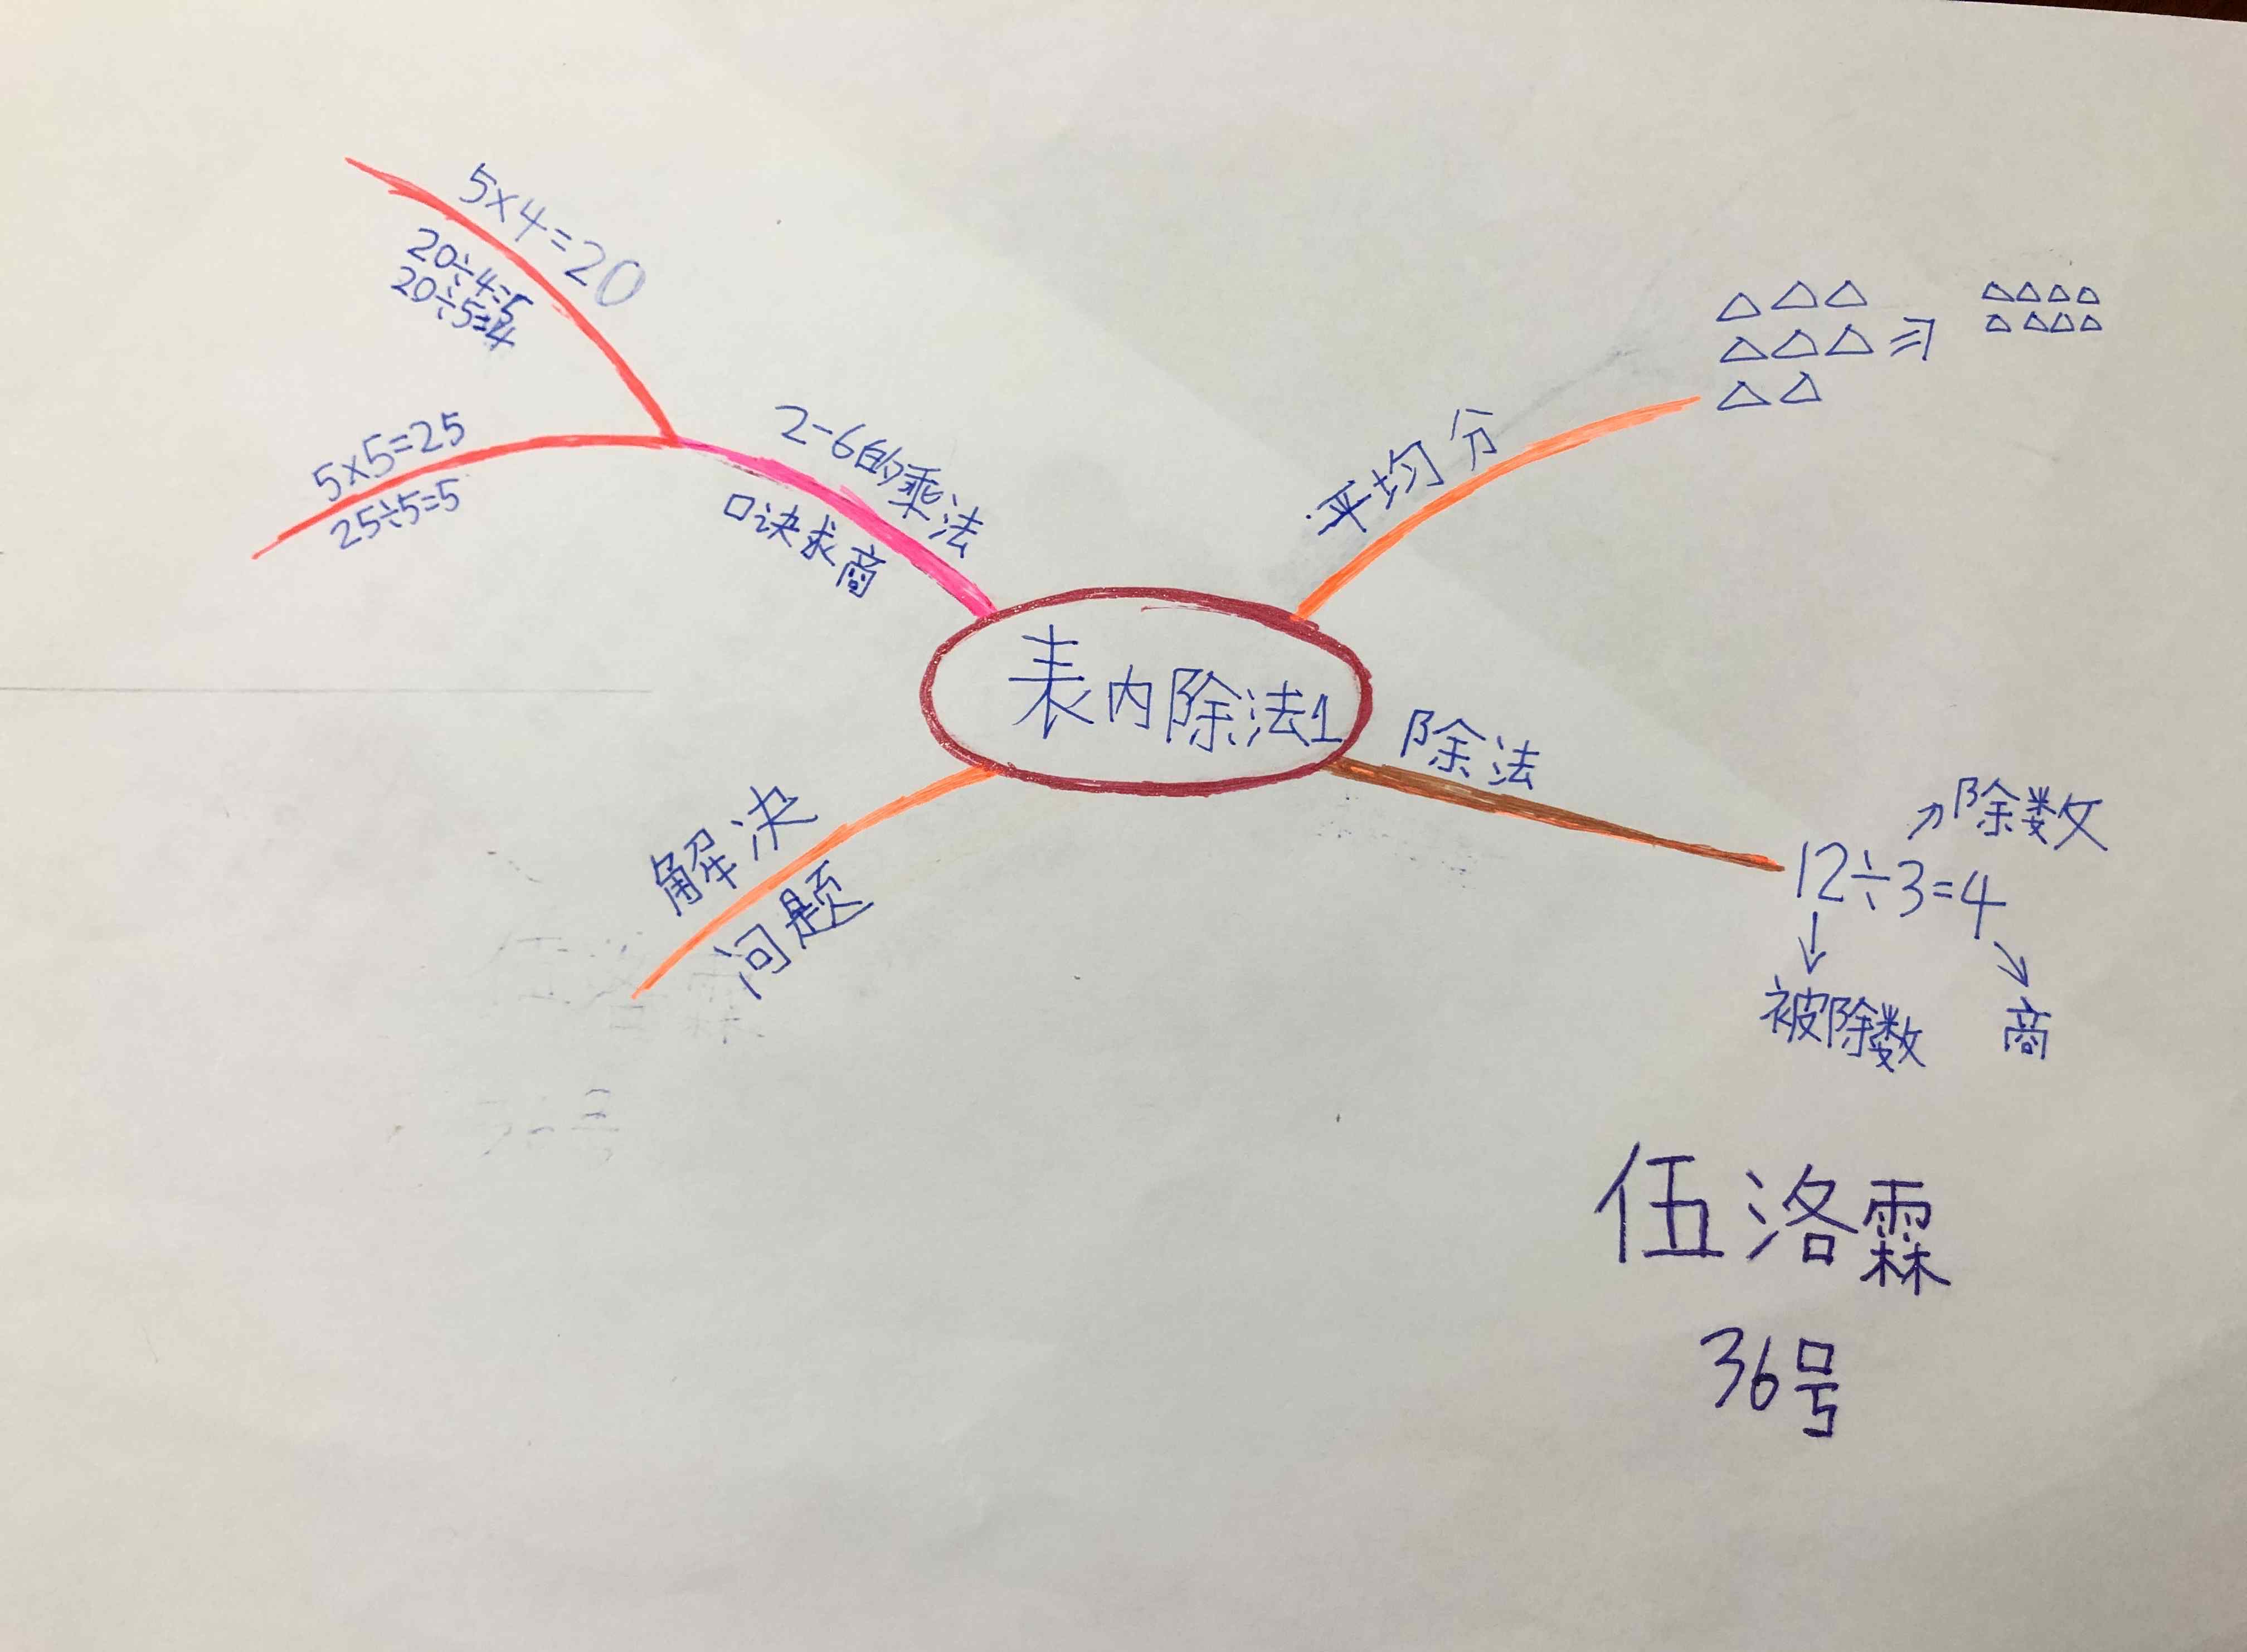 5×4=20
20÷4=5
20÷5=4
5×5=25
25÷5=5
2-6的乘法
口诀求商
平均分
表内除法1
除法
除数
12÷3=4
被除数
商
解决
问题
伍洛霖
36号